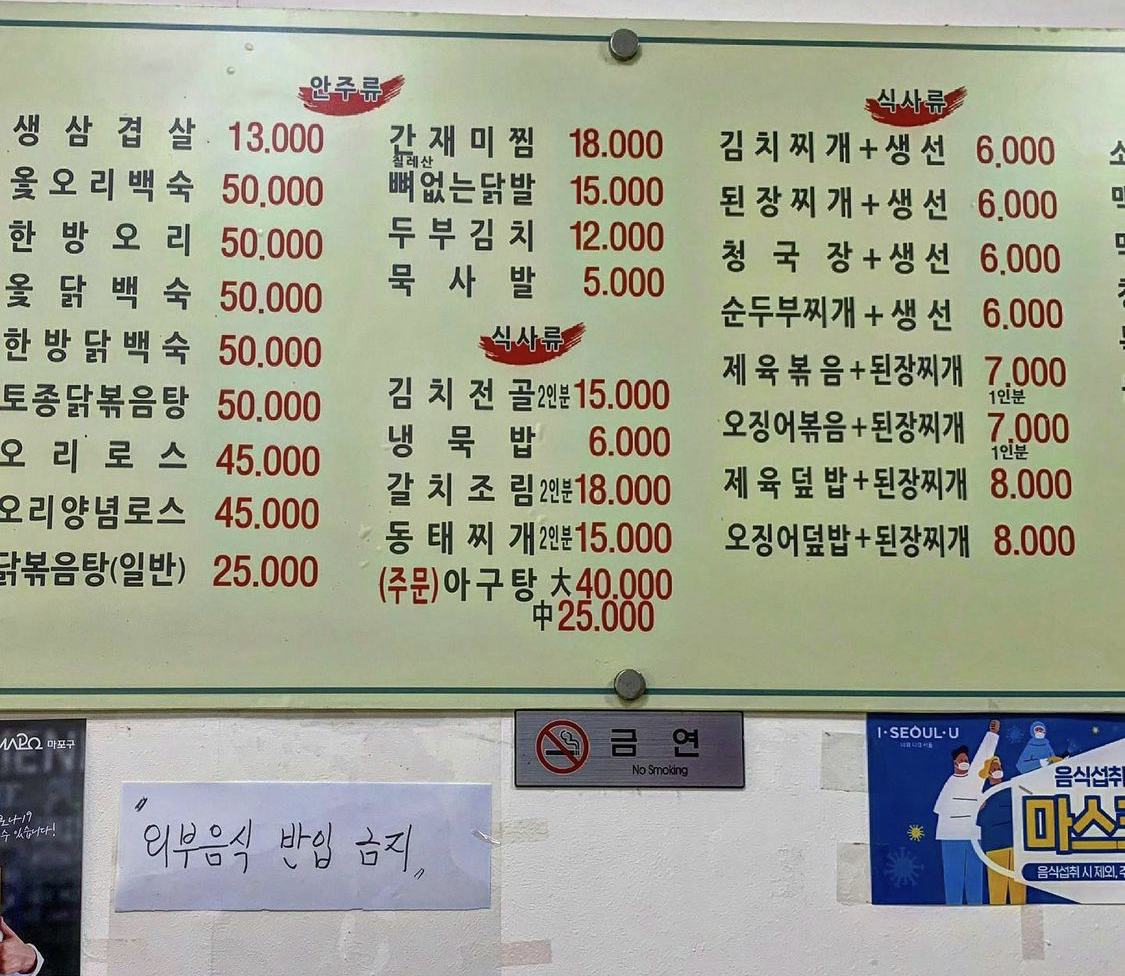 안주류
생삼겹살 13.000
옻오리백숙 50.000
한방오리 50.000
옻닭백숙 50.000
한방닭백숙 50.000
토종닭볶음탕 50.000
오리로스 45.000
오리양념로스 45.000
닭볶음탕(일반) 25.000
간재미찜 18.000
칠레산
뼈없는닭발 15.000
두부김치 12.000
묵사발 5.000
식사류
김치전골 2인분 15.000
냉묵밥 6.000
갈치조림 2인분 18.000
동태찌개 2인분 15.000
(주문)아구탕 大 40.000
中 25.000
식사류
김치찌개+생선 6.000
된장찌개+생선 6.000
청국장+생선 6.000
순두부찌개+생선 6.000
제육볶음+된장찌개 7.000
1인분
오징어볶음+된장찌개 7.000
1인분
제육덮밥+된장찌개 8.000
오징어덮밥+된장찌개 8.000
금연
No Smoking
MAPO 마포구
수 있습니다!
"외부음식 반입 금지"
I·SEOUL·U
너와 나의 서울
음식섭취
마스
음식섭취 시 제외,